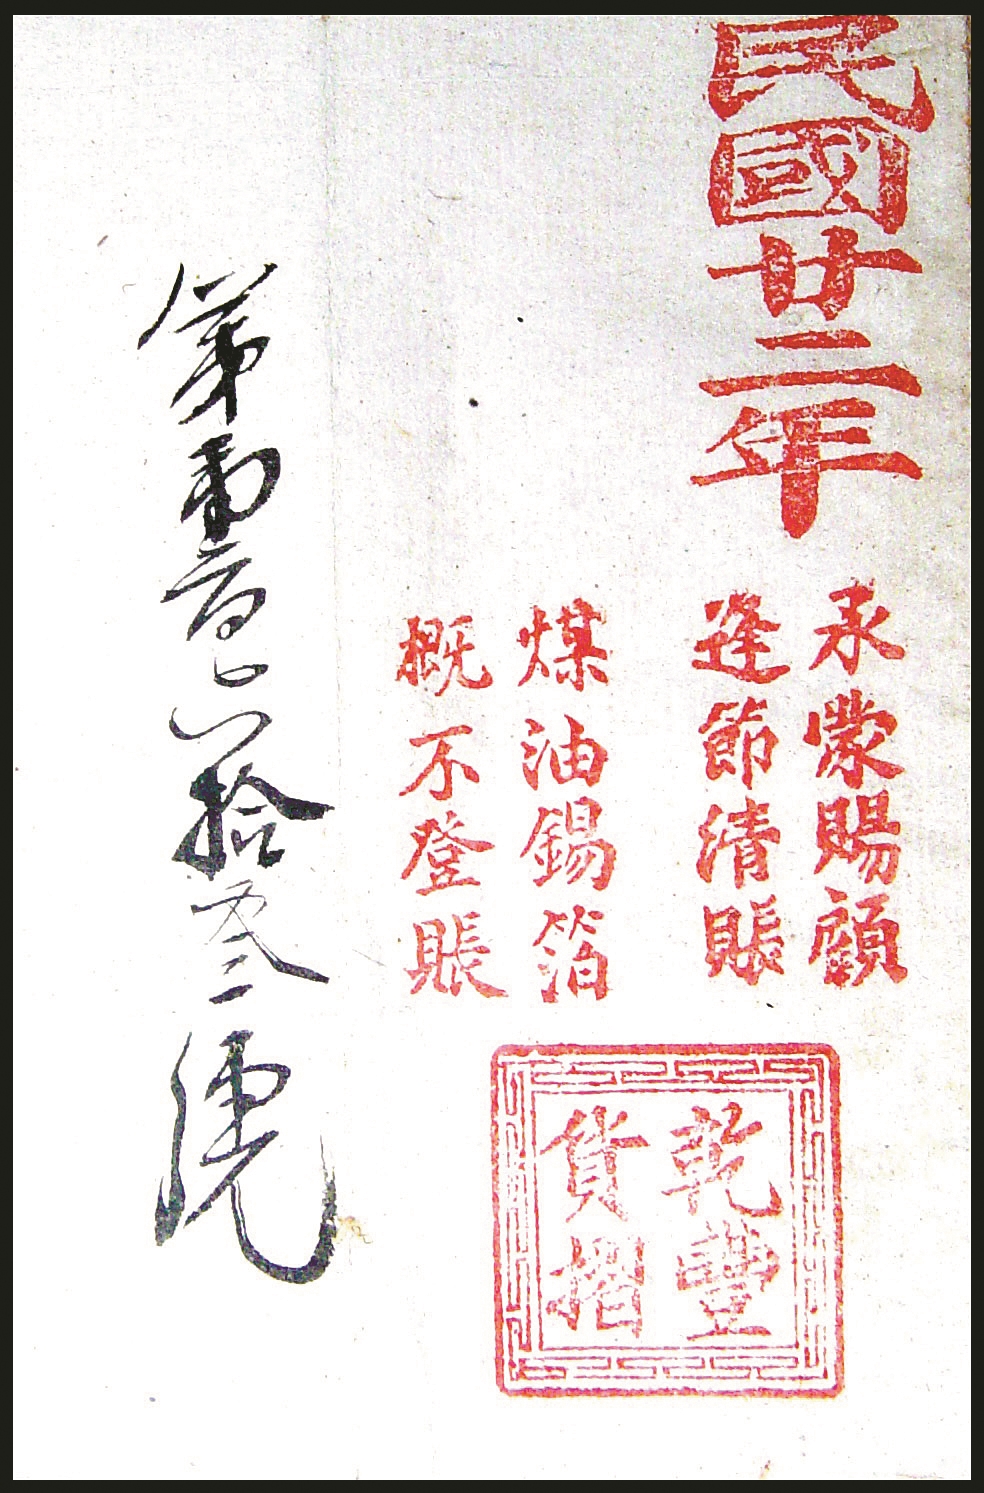 民國廿二年
承蒙賜顧
逢節清賬
煤油錫箔
概不登賬
乾豐
貨摺
第百拾叁號